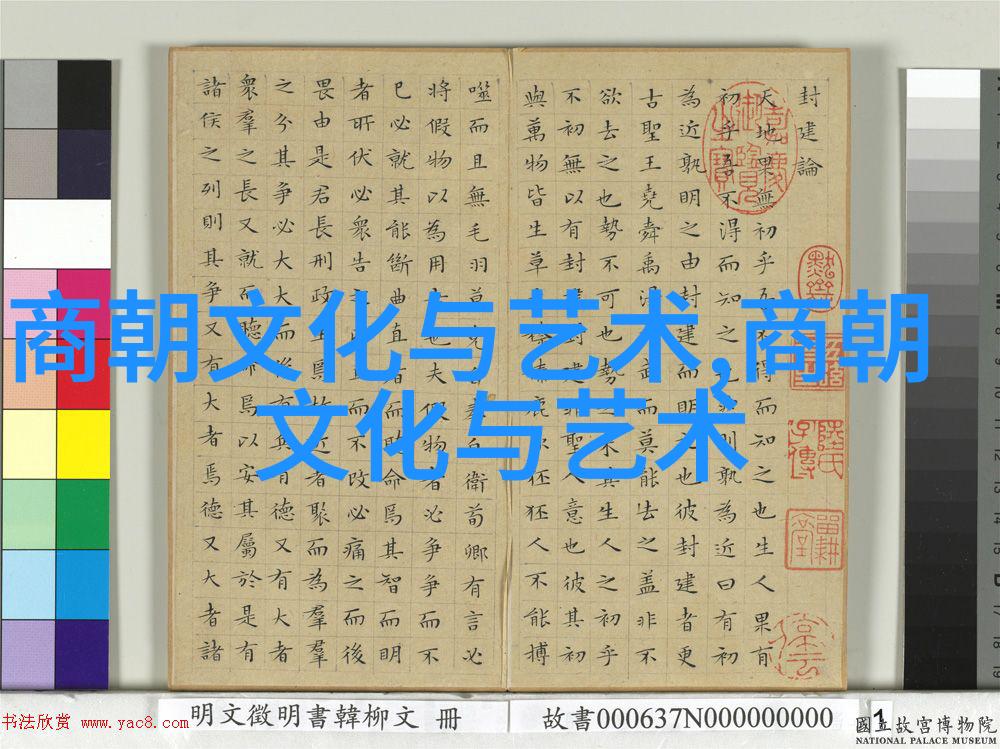 封建論
天地果無初乎吾不得而知之也生人果有
初乎吾不得而知之也然則孰為近曰有初
為近孰明之由封建而明之也彼封建者更
古聖王堯舜禹湯文武而莫能去之蓋非不
欲去之也勢不可也勢之來其生人之初乎
不初無以有封建封建非聖人意也彼其初
與萬物皆生草木榛榛鹿豕狉狉人不能搏
噬而且無毛羽莫克自奉自衛荀卿有言必
將假物以為用者也夫假物者必爭爭而不
已必就其能斷曲直者而聽命焉其智而明
者所伏必眾告之以直而不改必痛之而後
畏由是君長刑政生焉故近者聚而為羣
之分其爭必大大而後有兵有德又有大者
眾羣之長又就而聽命焉以安其屬於是有
諸侯之列則其爭又有大者焉德又大者諸
商朝文化与艺术,商朝
文化与艺术
书法欣赏 www.yac8.com
明文徵明書韓柳文 冊
故書000637N000000000
1
國立故宮博物院
NATIONAL PALACE MUSEUM